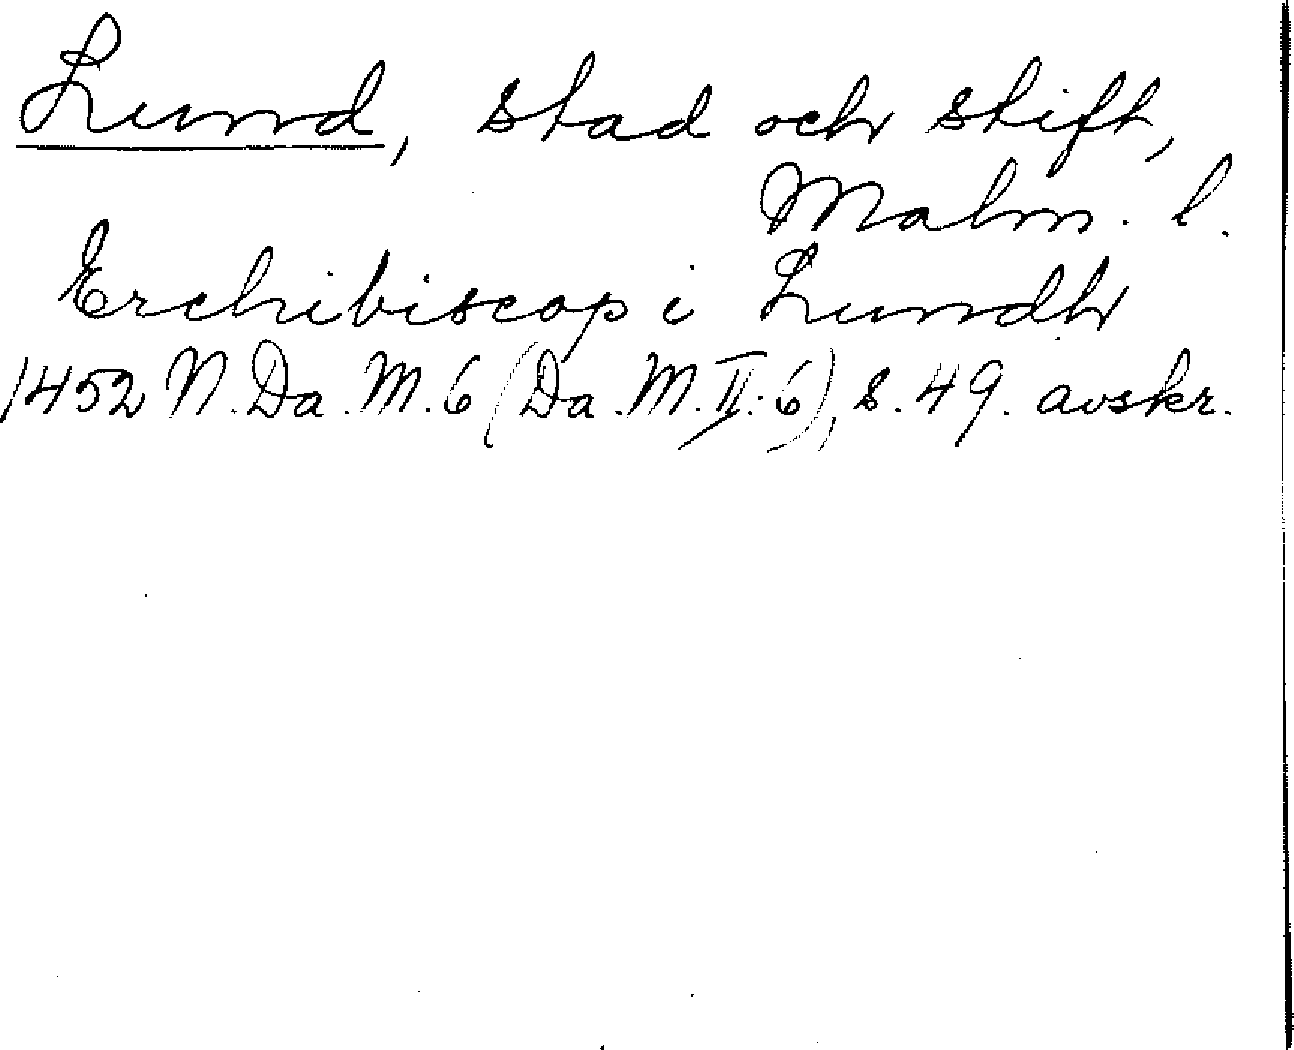 Lund, stad och stift,
Malm. l.
Erchibiscop i Lundh
1452 N. Da. M. 6 (Da. M. II. 6), s. 49. avskr.